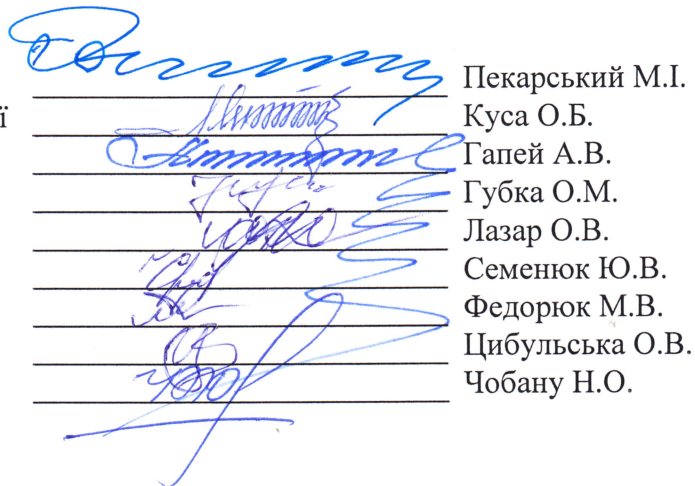 Пекарський М.І.
ї Куса О.Б.
Гапей А.В.
Губка О.М.
Лазар О.В.
Семенюк Ю.В.
Федорюк М.В.
Цибульська О.В.
Чобану Н.О.